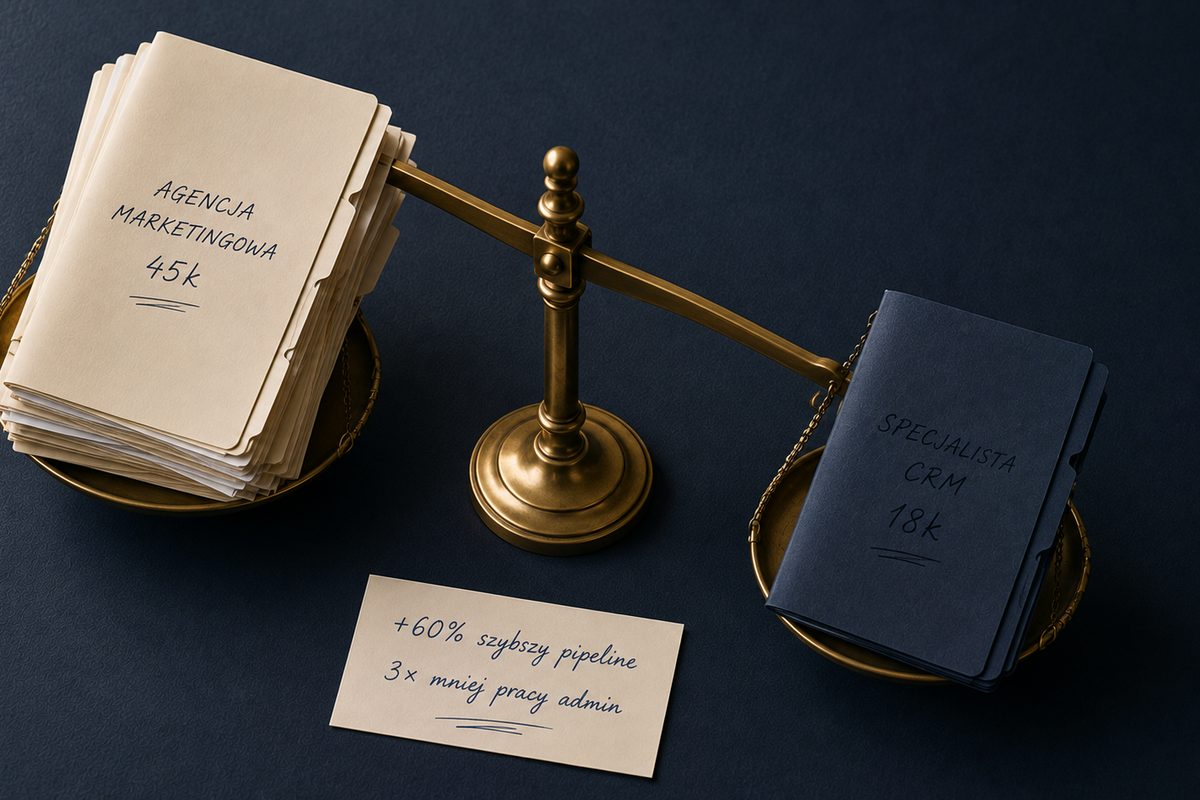 AGENCJA
MARKETINGOWA
45k
SPECJALISTA
CRM
18k
+60% szybszy pipeline
3x mniej pracy admin